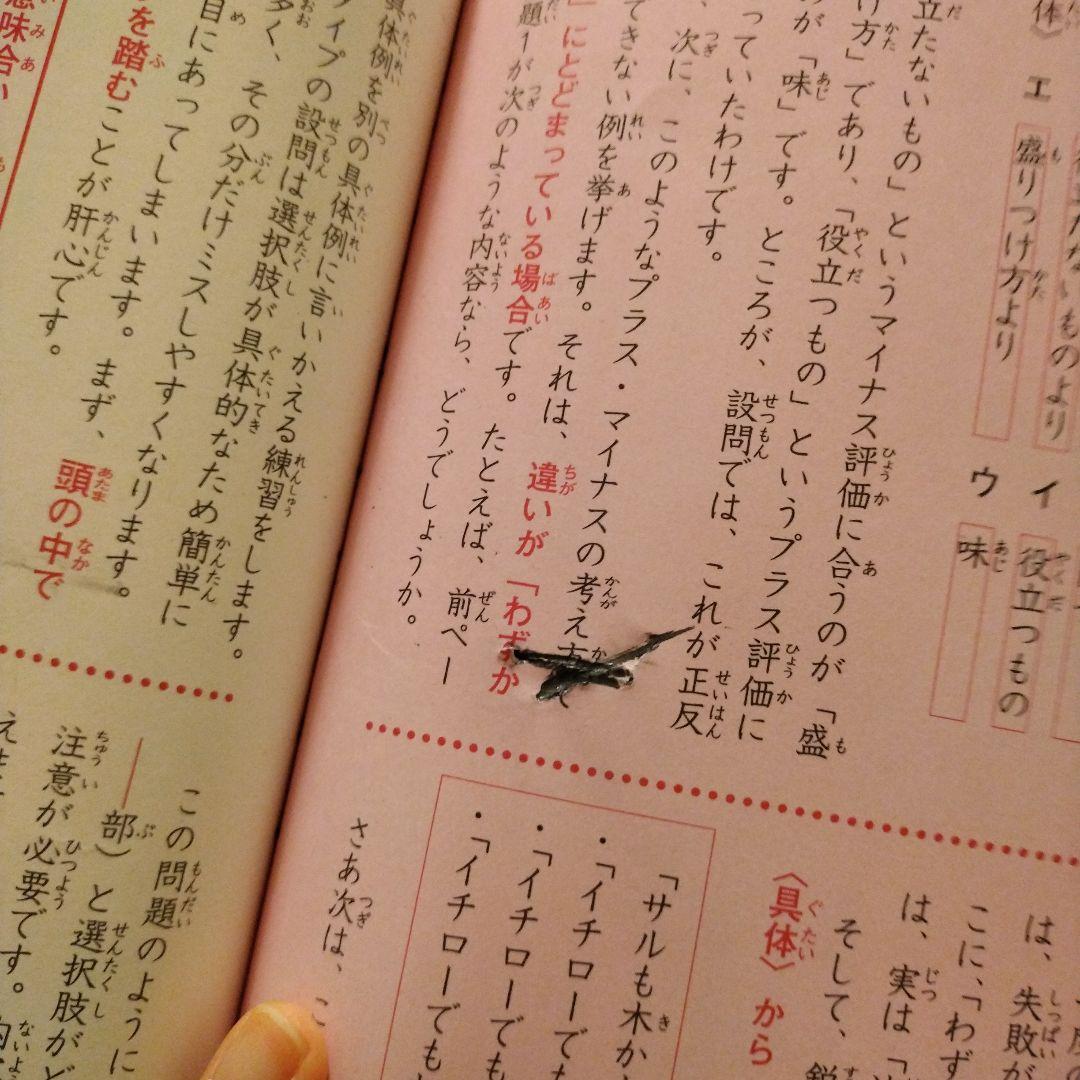 体〉
エ 盛りつけ方より
イ 役立つもの
ウ 味
立たないもの」というマイナス評価に合うのが「盛
け方」であり、「役立つもの」というプラス評価に
が「味」です。ところが、設問では、これが正反
っていたわけです。
次に、このようなプラス・マイナスの考え方
できない例を挙げます。それは、違いが「わずか
」にとどまっている場合です。たとえば、前ペー
題1が次のような内容なら、どうでしょうか。
は、失敗が
こに、「わず
は、実は「
そして、鋭
〈具体〉から
「サルも木か
・「イチローでも
・「イチローでも
・「イチローでも
さあ次は、こ
具体例を別の具体例に言いかえる練習をします。
タイプの設問は選択肢が具体的なため簡単に
多く、その分だけミスしやすくなります。
目にあってしまいます。まず、頭の中で
を踏むことが肝心です。
意味合い
この問題のように
部)と選択肢がど
注意が必要です。